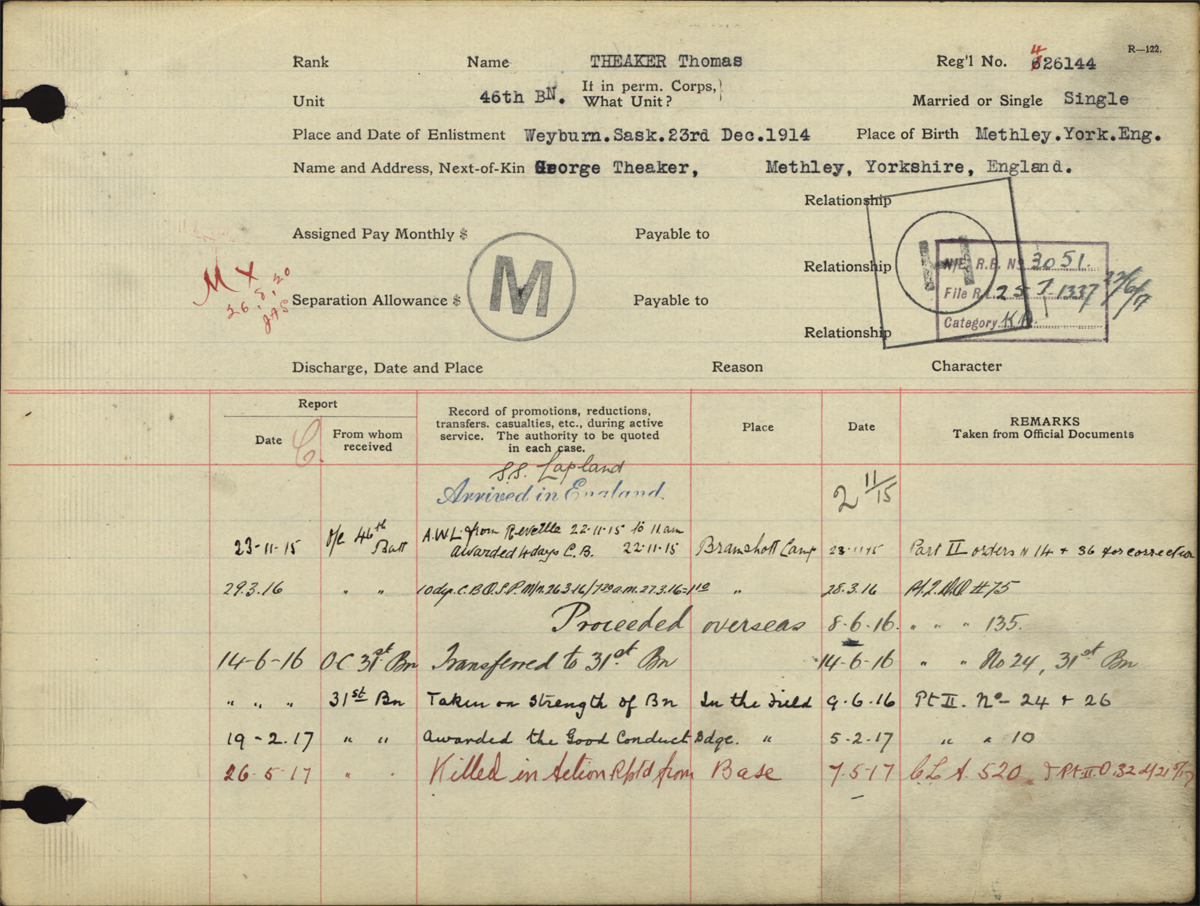 R—122.
Rank Name THEAKER Thomas Reg'l No. 426144
Unit 46th BN. If in perm. Corps, What Unit? Married or Single Single
Place and Date of Enlistment Weyburn.Sask.23rd Dec.1914 Place of Birth Methley.York.Eng.
Name and Address, Next-of-Kin George Theaker, Methley, Yorkshire, England.
Relationship
Assigned Pay Monthly $ Payable to
Relationship
Separation Allowance $ Payable to
Relationship
M
M X
26.8.20
H
N/E. R.B. No 3051.
File R.L. 25 T 1337 27/6/17
Category K.A.
Discharge, Date and Place Reason Character
Report
Date From whom received Record of promotions, reductions, transfers. casualties, etc., during active service. The authority to be quoted in each case. Place Date REMARKS Taken from Official Documents
C.
SS. Lapland
Arrived in England. 2 11/15
23-11-15 O/c 46th Batt A.W.L. from Reveille 22-11-15 to 11am Bramshott Camp 23-11-15 Part II orders N 14 + 36 for correction
awarded 4 days C.B. 22-11-15
29.3.16 " " " 28.3.16 #75
Proceeded overseas 8-6-16. " " " 135.
14-6-16 OC 31st Bn Transferred to 31st Bn 14-6-16 " " No 24, 31st Bn
" " " 31st Bn Taken on Strength of Bn In the Field 9-6-16 Pt II. No 24 + 26
19-2.17 " " Awarded the Good Conduct Bdge. " 5-2-17 " " 10
26-5-17 " " Killed in Action Rptd from Base 7-5-17 C.L. A. 520 & Pt II O.32 d/21 5/17